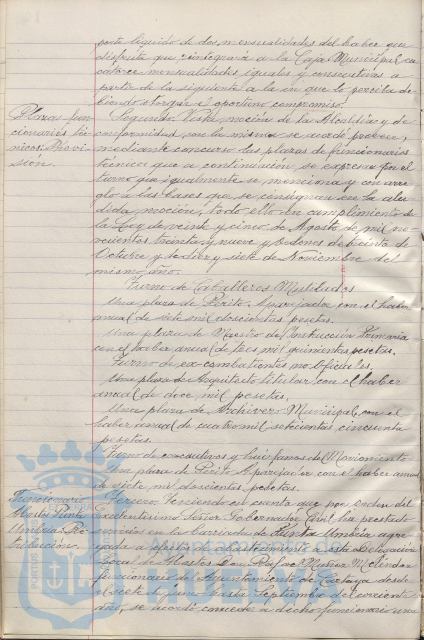 porte liquido de dos mensualidades del haber que
disfruta que reintegrará a la Caja Municipal en
catorce mensualidades iguales y consecutivas a
partir de la siguiente a la en que lo perciba de-
biendo otorgar el oportuno compromiso.
Plazas fun-
cionarios téc-
nicos. Provi-
sión.
Segundo. Vista moción de la Alcaldía y de
conformidad con la misma se acordó proveer,
mediante concurso las plazas de funcionarios
técnicos que a continuación se expresa por el
turno que igualmente se menciona y con arre-
glo a las bases que se consignan en la alu-
dida moción, todo ello en cumplimiento de
la Ley de veinte y cinco de Agosto de mil no-
vecientos treinta y nueve y ordenes de treinta de
Octubre y de diez y siete de Noviembre del
mismo año.
Turno de Caballeros Mutilados
Una plaza de Perito Aparejador con el haber
anual de siete mil doscientas pesetas.
Una plaza de Maestro de Instrucción Primaria
con el haber anual de tres mil quinientas pesetas.
Turno de ex-combatientes no Oficiales.
Una plaza de Arquitecto titular con el haber
anual de doce mil pesetas.
Una plaza de Archivero Municipal con el
haber anual de cuatro mil setecientas cincuenta
pesetas.
Turno de excautivos y huérfanos del Movimiento
Una plaza de Perito Aparejador con el haber anual
de siete mil doscientas pesetas.
Funcionario
Abastos Punta
Umbría. Re-
tribución.
Tercero. Teniendo en cuenta que por orden del
Excelentísimo Señor Gobernador Civil ha prestado
servicios en la barriada de Punta Umbría agre-
gado a efectos de abastecimiento a esta Delegación
Local de Abastos Don Rafael Muñoz
funcionario del Ayuntamiento de Cartaya desde
el siete de junio hasta Septiembre del corriente
año, se acordó conceder a dicho funcionario una